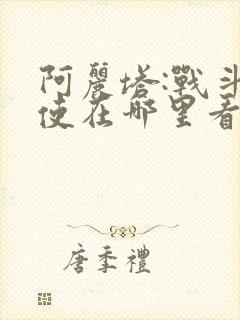 阿麗塔:戰斗
使在哪里看
唐季禮